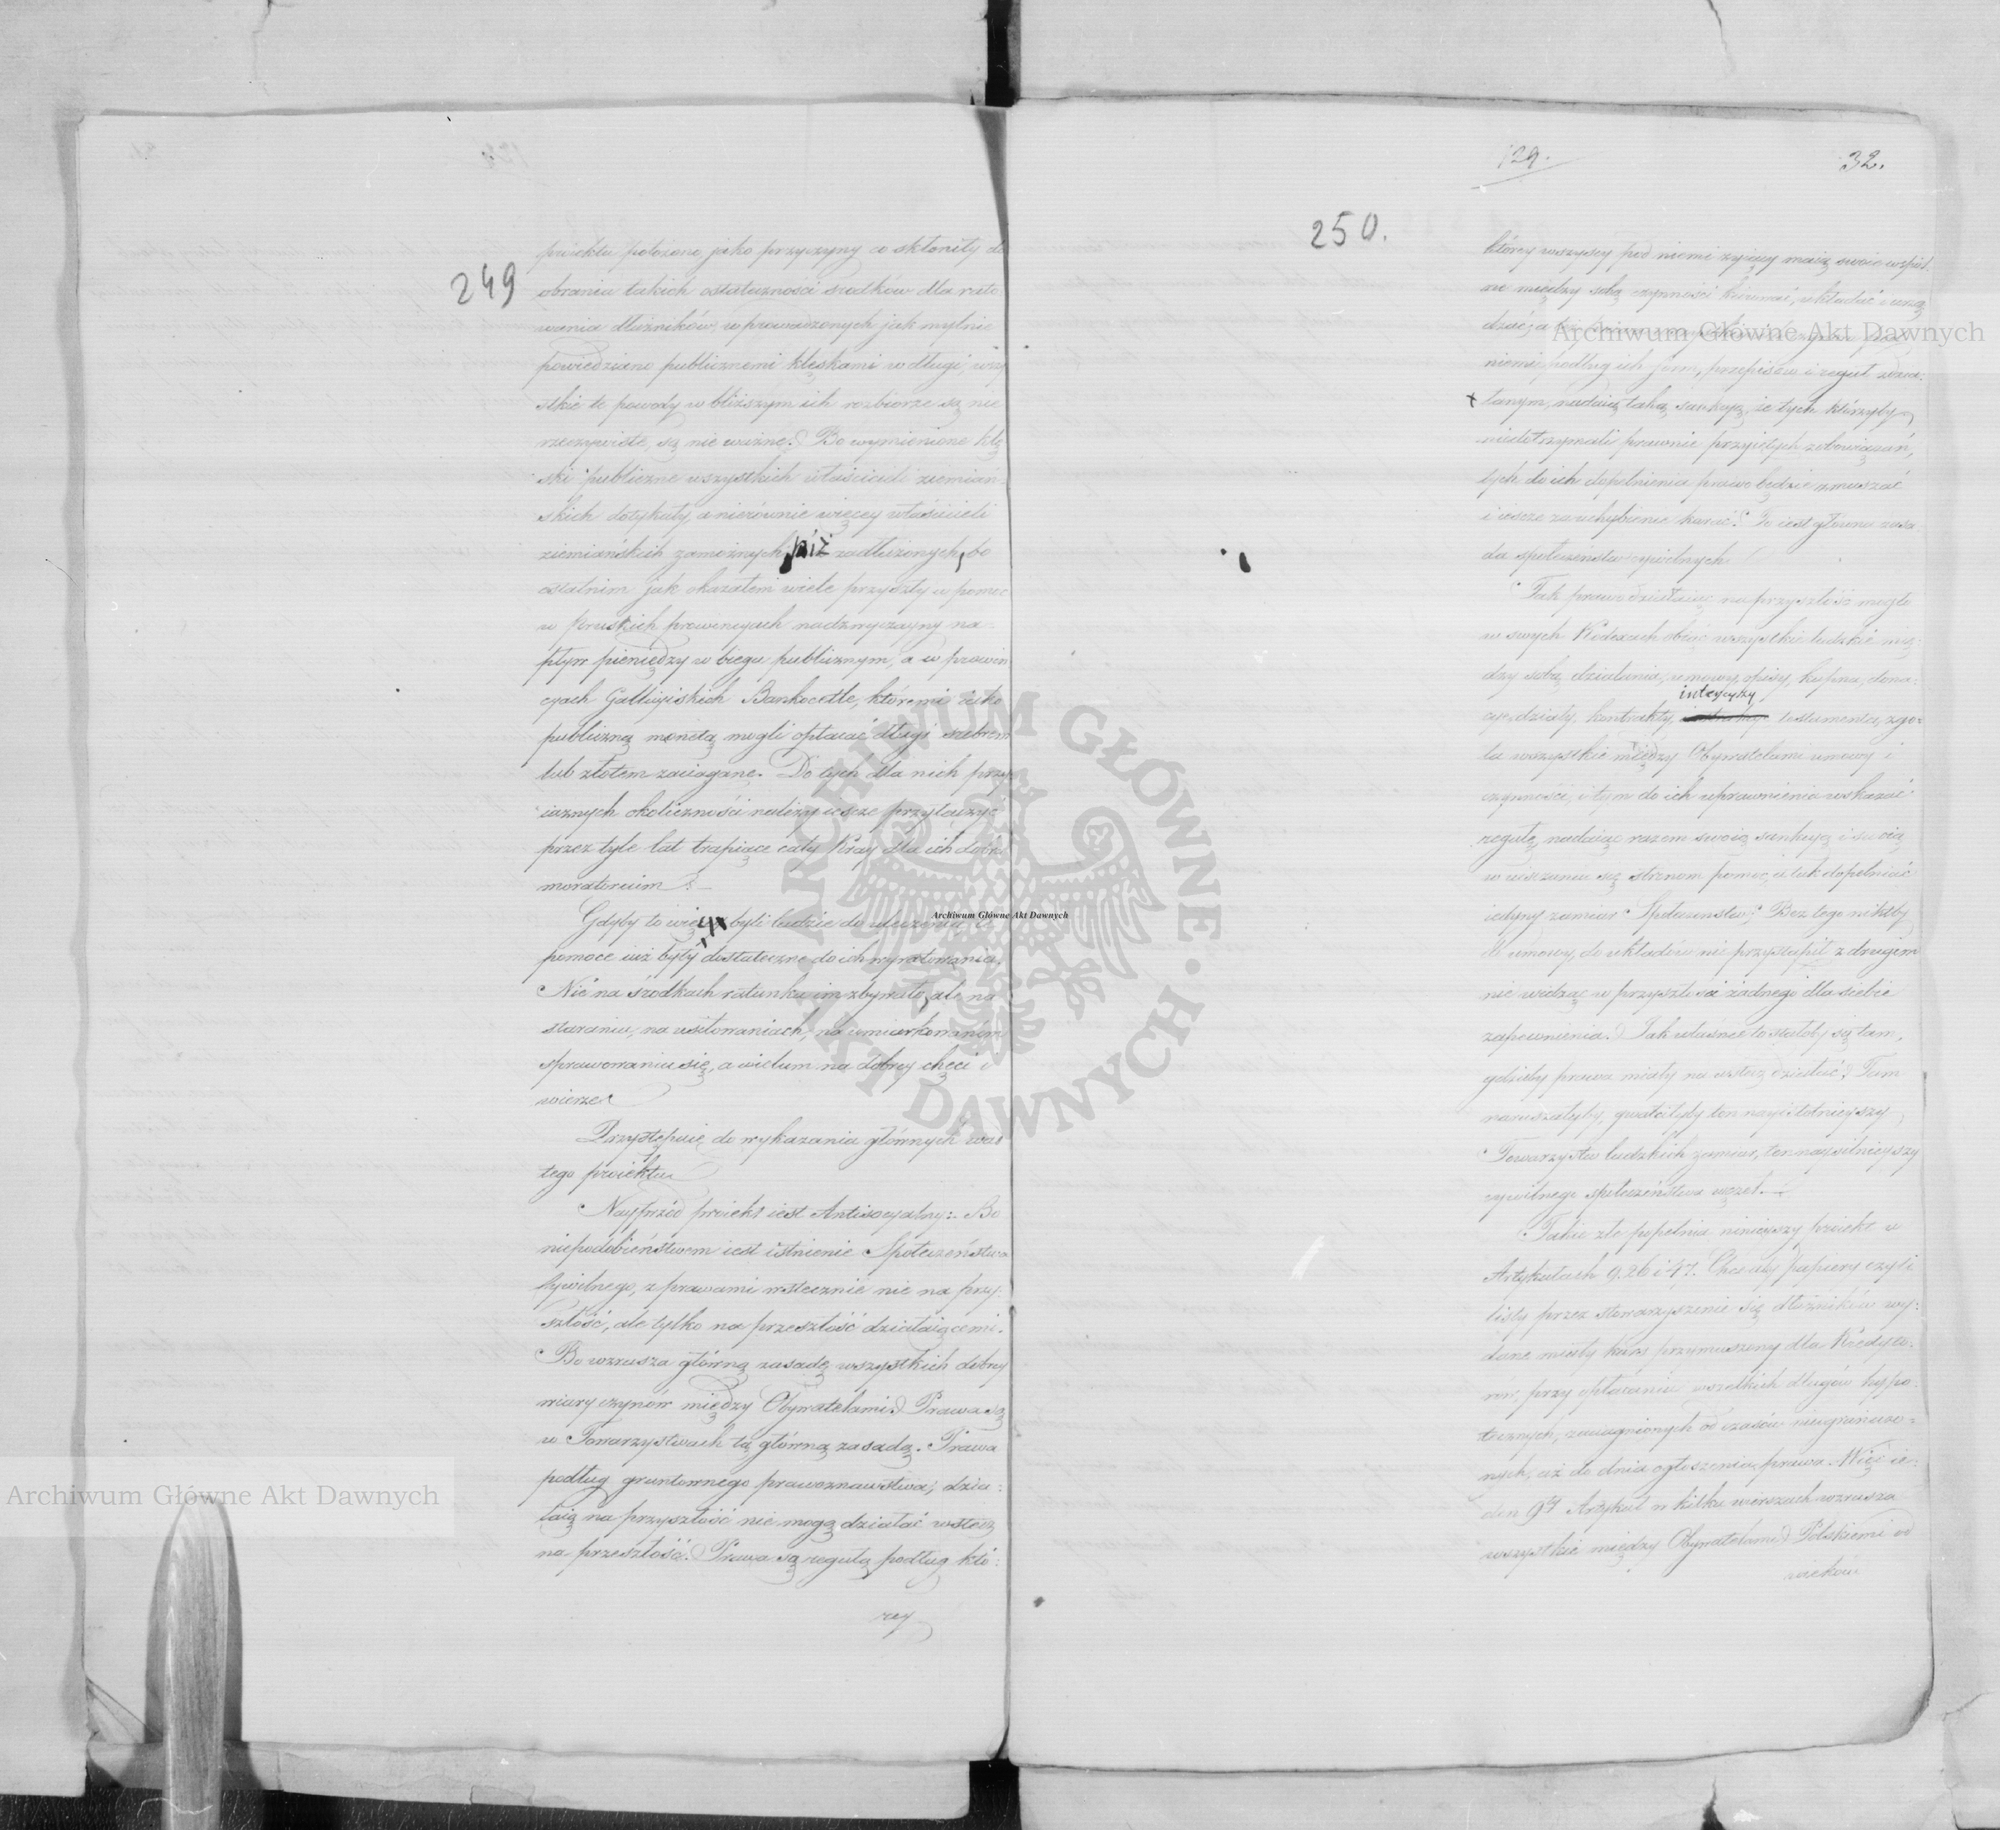 249
proiektu położone jako przyczyny co skłoniły do
obrania takich ostateczności środków dla rato:
wania dłużników, wprowadzonych jak mylnie
powiedziano publicznemi klęskami w długi, wszy
stkie te powody w bliższym ich rozbiorze są nie
rzeczywiste, są nie ważne. Bo wymienione klę
ski publiczne wszystkich właścicieli ziemiań:
skich dotykały, a nierównie więcey właścicieli
ziemiańskich zamożnych niż zadłużonych, bo
ostatnim jak okazałem wiele przyszły w pomoc
w pruskich prowincyach nadzwyczayny na:
pływ pieniędzy w biegu publicznym, a w prowin
cyach Gallicyiskich Bankocetle, któremi iako
publiczną monetą mogli opłacać długi srebrem
lub złotem zaciągane. Do tych dla nich przy
iaznych okoliczności należy ieszcze przyłączyć
przez tyle lat trapiące cały Kray dla ich
moratorium.
Gdyby to więc byli ludzie do uleczenia te
pomoce iuż były dostateczne do ich wyratowania.
Nie na środkach ratunku im zbywało, ale na
staraniu, na usiłowaniach, na umiarkowanem
sprawowaniu się, a wielum na dobrey chęci i
wierze.
Przystępuię do wykazania głównych wad
tego proiektu
Nayprzód proiekt iest Antisocyalny: Bo
niepodobieństwem iest istnienie Społeczeństwa
Cywilnego, z prawami wstecznie nie na przy:
szłość, ale tylko na przeszłość działaiącemi.
Bo wzrusza główną zasadę wszystkich dobrey
wiary czynów między Obywatelami. Prawa są
w Towarzystwach tą główną zasadą. Prawa
podług gruntownego prawoznawstwa, dzia:
łaią na przyszłość nie mogą działać wstecz
na przeszłość. Prawa są regułą podług któ:
rey
129.
32.
250.
którey wszyscy pod niemi żyiący maią swoie wspól:
ne między sobą czynności kierować, układać i urzą
dzać, a
niemi, podług ich form, przepisów i reguł zdzia:
łanym, nadaią taką sankcyą, że tych którzyby
niedotrzymali prawnie przyiętych zobowiązań,
tych do ich dopełnienia prawo będzie zmuszać
i ieszcze za uchybienie karać. To iest główna zasa
da społeczeństw cywilnych.
Tak prawo działaiąc na przyszłość mogło
w swych Kodexach obiąć wszystkie ludzkie mię:
dzy sobą działania, umowy, opisy, kupna, dona:
intercyzy
cye, działy, kontrakty, testamenta, zgo:
ła wszystkie między Obywatelami umowy i
czynności, i tym do ich uprawnienia wskazać
regułę, nadaiąc razem swoią sankcyą i swoią
w ziszczeniu się stronom pomoc, i tak dopełniać
iedyny zamiar Społeczeństw. Bez tego niktby
do umowy, do układów nie przystąpił z drugim
nie widząc w przyszłości żadnego dla siebie
zapewnienia. Jak właśnie to stałoby się tam,
gdzieby prawa miały na wstecz działać. Tam
naruszałyby, gwałciłyby ten nayistotnieyszy
Towarzystw ludzkich zamiar, ten naysilnieyszy
cywilnego społeczeństwa węzeł.
Takie złe popełnia ninieyszy proiekt w
Artykułach 9. 26 i 47. Chce aby papiery czyli
listy przez stowarzyszenie się dłużników wy:
dane miały kurs przymuszony dla Kredyto:
rów, przy opłacaniu wszelkich długów hypo:
tecznych, zaciągnionych od czasów nieograniczo:
nych, aż do dnia ogłoszenia prawa. Więc ie:
den 9ty Artykuł w kilku wierszach wzrusza
wszystkie między Obywatelami Polskiemi od
wieków
Archiwum Główne Akt Dawnych
Archiwum Główne Akt Dawnych
Archiwum Główne Akt Dawnych
ARCHIWUM GŁÓWNE AKT DAWNYCH